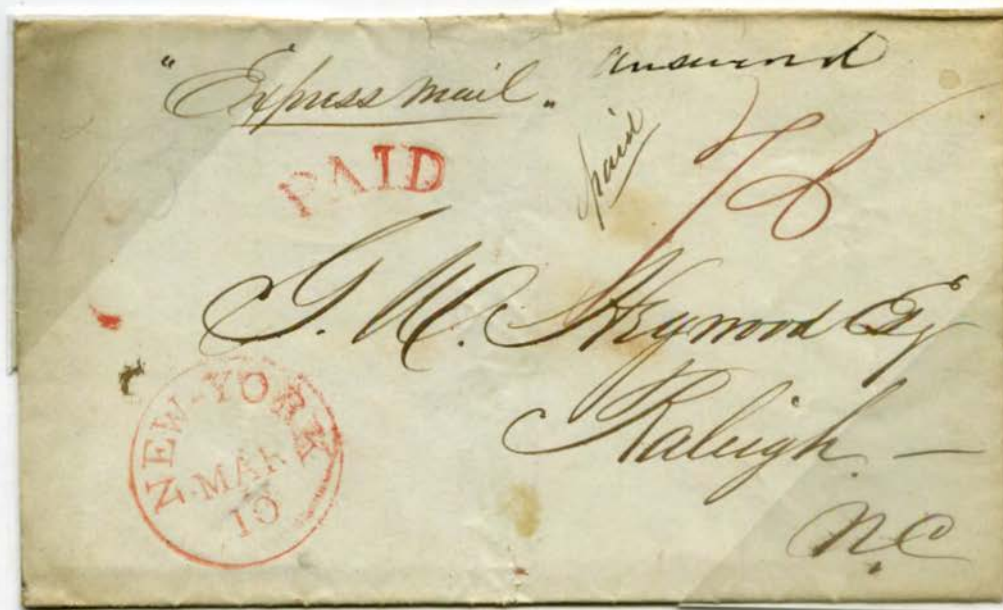 "Express mail" answered
PAID
paid
75
G. W. Haywood Esq
Raleigh —
N.C
NEW-YORK
MAR
10